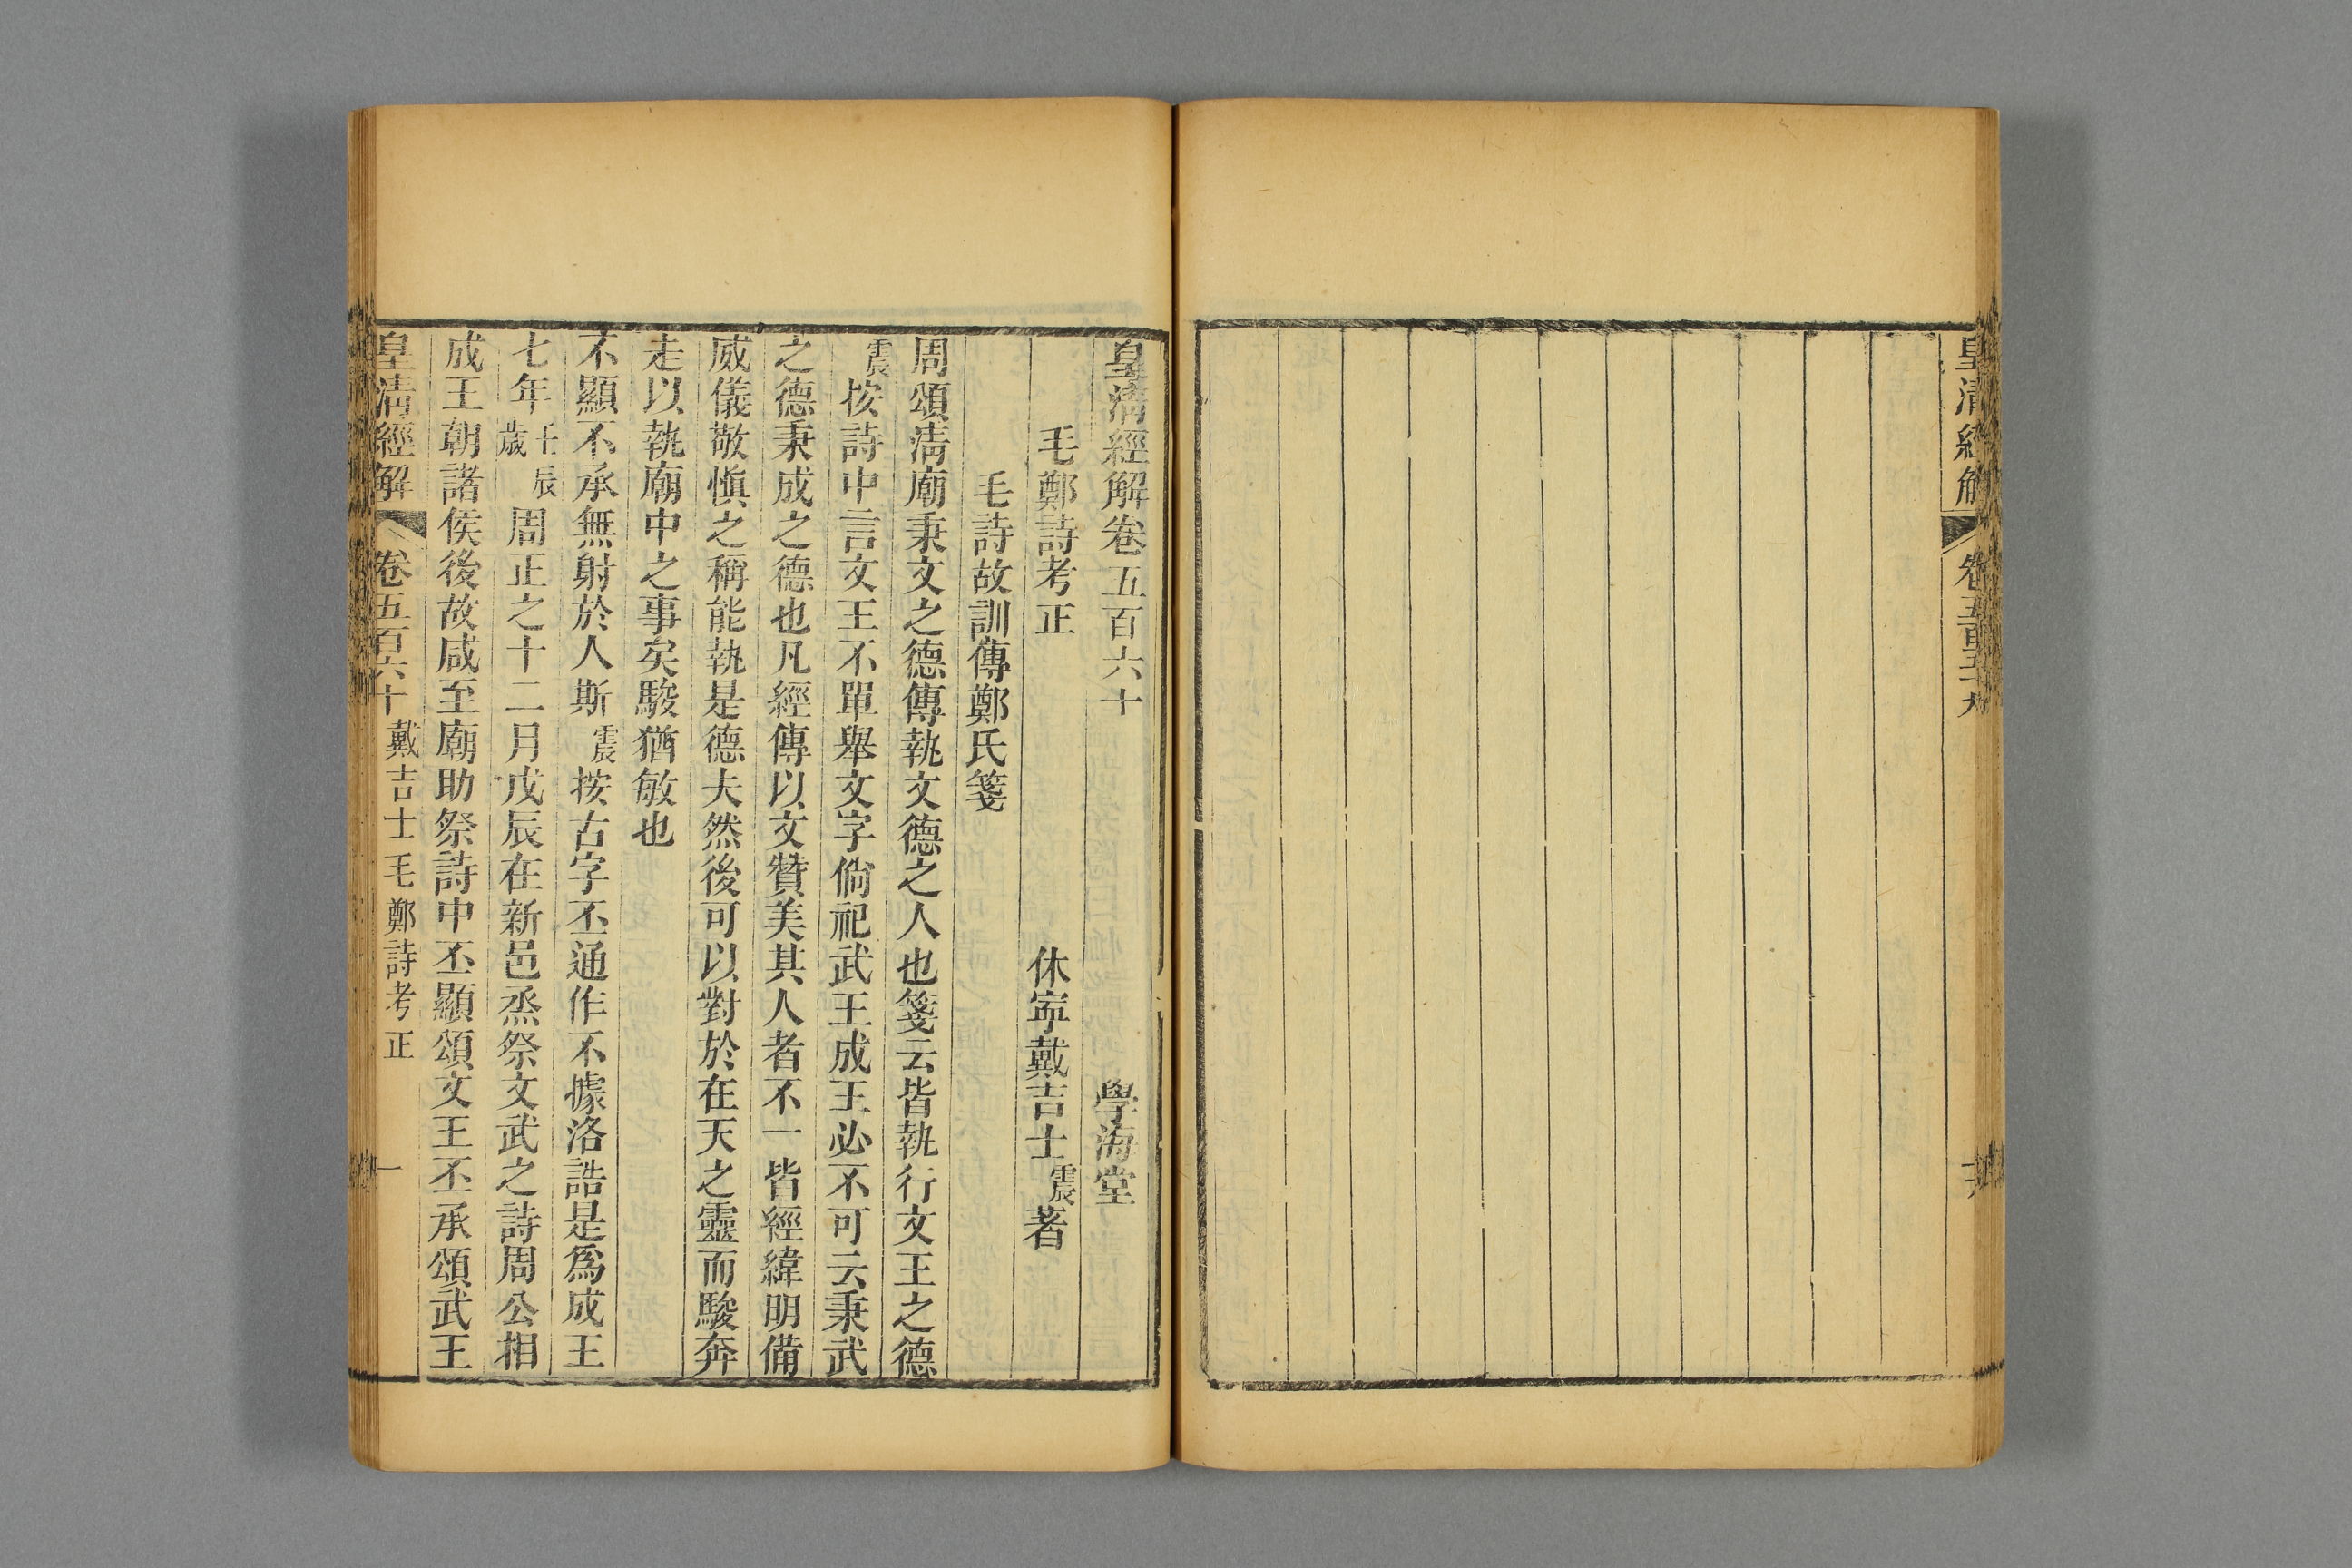 皇清經解 卷五百五十九
皇清經解卷五百六十 學海堂
毛鄭詩考正 休寧戴吉士震著
毛詩故訓傳鄭氏箋
周頌清廟秉文之德傳執文德之人也箋云皆執行文王之德
震按詩中言文王不單舉文字倘祀武王成王必不可云秉武
之德秉成之德也凡經傳以文贊美其人者不一皆經緯明備
威儀敬愼之稱能執是德夫然後可以對於在天之靈而駿奔
走以執廟中之事矣駿猶敏也
不顯不承無射於人斯震按古字丕通作不據洛誥是爲成王
七年歲壬辰周正之十二月戊辰在新邑烝祭文武之詩周公相
成王朝諸侯後故咸至廟助祭詩中丕顯頌文王丕承頌武王
皇清經解 卷五百六十 戴吉士毛鄭詩考正 一